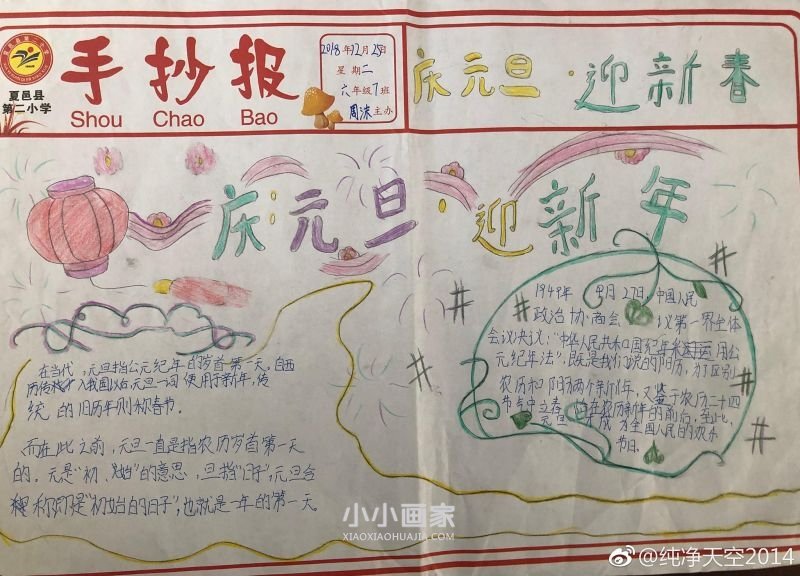 夏邑县
第二小学
手抄报
Shou Chao Bao
2018年12月25日
星期二
六年级7班
周沫主办
庆元旦·迎新春
庆元旦·迎新年
在当代,元旦指公元纪年的岁首第一天。自西
历传入我国以后元旦一词 便用于新年,传
统的旧历年则称春节。
而在此之前,元旦一直是指农历岁首第一天
的。元是"初""始"的意思,旦指"日子",元旦合
称即是"初始的日子",也就是一年的第一天。
1949年9月27日,中国人民
政治协商会议第一界全体
会议决议:"中华人民共和国纪年采用公
元纪年法",既是我们说的阳历,为了区别
农历和阳历两个新年,又鉴于农历二十四
节气中立春 在农历新年的前后,至此,
元旦 成为全国人民的欢办
节日。
小小画家
XIAOXIAOHUAJIA.COM
@纯净天空2014